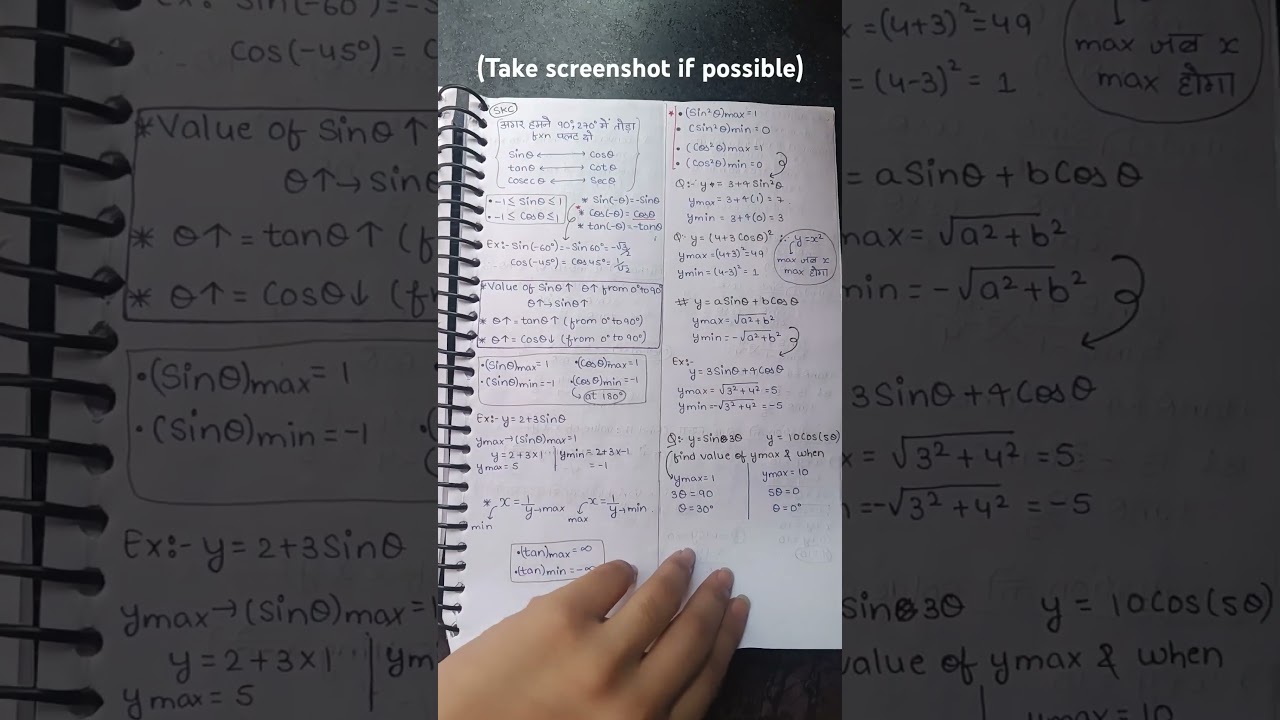 (Take screenshot if possible)
SKC
अगर हमने 90°, 270° में तोड़ा
fxn पलट दो
Sinθ ⟷ Cosθ
tanθ ⟷ Cotθ
Cosecθ ⟷ Secθ
• -1 ≤ Sinθ ≤ 1
• -1 ≤ Cosθ ≤ 1
* Sin(-θ) = -Sinθ
* Cos(-θ) = Cosθ
* tan(-θ) = -tanθ
Ex:- Sin(-60°) = -Sin60° = -√3/2
Cos(-45°) = Cos45° = 1/√2
*Value of Sinθ↑ θ↑ from 0° to 90°
θ↑→ sinθ↑
* θ↑ = tanθ↑ (from 0° to 90°)
* θ↑ = Cosθ↓ (from 0° to 90°)
• (Sinθ)max = 1
• (Sinθ)min = -1
• (Cosθ)max = 1
• (Cosθ)min = -1
↳ at 180°
Ex:- y = 2+3Sinθ
ymax → (Sinθ)max = 1
y = 2+3×1
ymax = 5
ymin = 2+3×-1
= -1
* x = 1/y → max
min
x = 1/y → min
max
• (tan)max = ∞
• (tan)min = -∞
* • (Sin²θ)max = 1
• (Sin²θ)min = 0
• (Cos²θ)max = 1
• (Cos²θ)min = 0
Q:- y = 3+4Sin²θ
ymax = 3+4(1) = 7
ymin = 3+4(0) = 3
Q:- y = (4+3Cosθ)²
ymax = (4+3)² = 49
ymin = (4-3)² = 1
∵ y = x²
max जब x
max होगा
# y = aSinθ + bCosθ
ymax = √a²+b²
ymin = -√a²+b²
Ex:-
y = 3Sinθ + 4Cosθ
ymax = √3²+4² = 5
ymin = -√3²+4² = -5
Q:- y = Sin3θ y = 10Cos(5θ)
find value of ymax & when
ymax = 1
3θ = 90
θ = 30°
ymax = 10
5θ = 0
θ = 0°